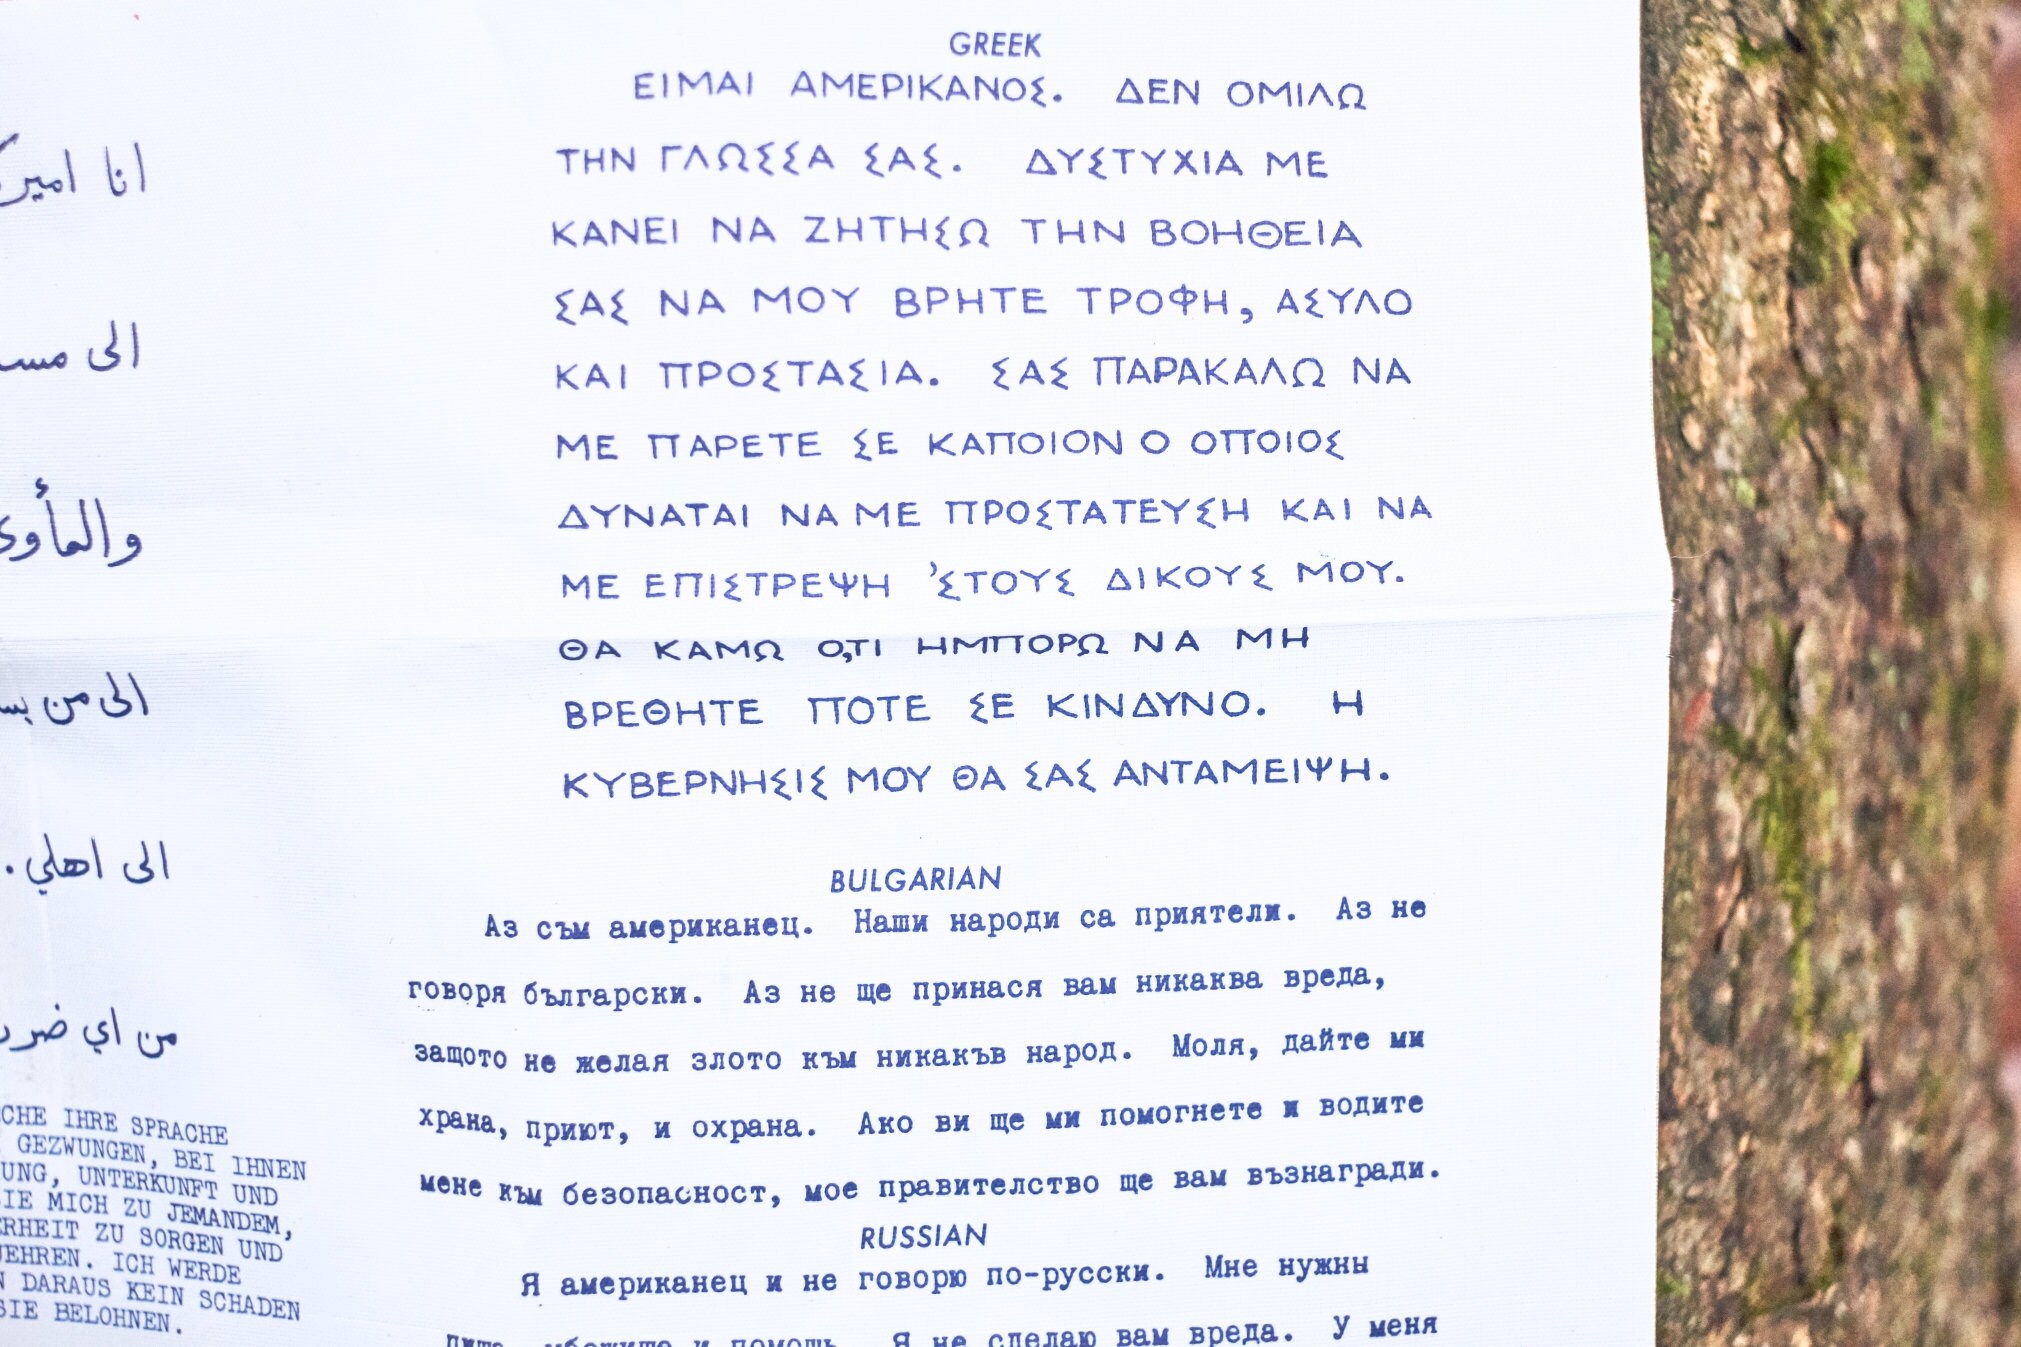 انا
الى
الى من
الى اهلي.
من اي
IHRE SPRACHE
GEZWUNGEN, BEI IHNEN
UNTERKUNFT UND
MICH ZU JEMANDEM,
ZU SORGEN UND
ICH WERDE
DARAUS KEIN SCHADEN
BELOHNEN.
GREEK
ΕΙΜΑΙ ΑΜΕΡΙΚΑΝΟΣ. ΔΕΝ ΟΜΙΛΩ
ΤΗΝ ΓΛΩΣΣΑ ΣΑΣ. ΔΥΣΤΥΧΙΑ ΜΕ
ΚΑΝΕΙ ΝΑ ΖΗΤΗΣΩ ΤΗΝ ΒΟΗΘΕΙΑ
ΣΑΣ ΝΑ ΜΟΥ ΒΡΗΤΕ ΤΡΟΦΗ, ΑΣΥΛΟ
ΚΑΙ ΠΡΟΣΤΑΣΙΑ. ΣΑΣ ΠΑΡΑΚΑΛΩ ΝΑ
ΜΕ ΠΑΡΕΤΕ ΣΕ ΚΑΠΟΙΟΝ Ο ΟΠΟΙΟΣ
ΔΥΝΑΤΑΙ ΝΑ ΜΕ ΠΡΟΣΤΑΤΕΥΣΗ ΚΑΙ ΝΑ
ΜΕ ΕΠΙΣΤΡΕΨΗ ’ΣΤΟΥΣ ΔΙΚΟΥΣ ΜΟΥ.
ΘΑ ΚΑΜΩ Ο,ΤΙ ΗΜΠΟΡΩ ΝΑ ΜΗ
ΒΡΕΘΗΤΕ ΠΟΤΕ ΣΕ ΚΙΝΔΥΝΟ. Η
ΚΥΒΕΡΝΗΣΙΣ ΜΟΥ ΘΑ ΣΑΣ ΑΝΤΑΜΕΙΨΗ.
BULGARIAN
Аз съм американец. Наши народи са приятели. Аз не
говоря български. Аз не ще принася вам никаква вреда,
защото не желая злото към никакъв народ. Моля, дайте ми
храна, приют, и охрана. Ако ви ще ми помогнете и водите
мене към безопасност, мое правителство ще вам възнагради.
RUSSIAN
Я американец и не говорю по-русски. Мне нужны
и помощь. Я не сделаю вам вреда. У меня